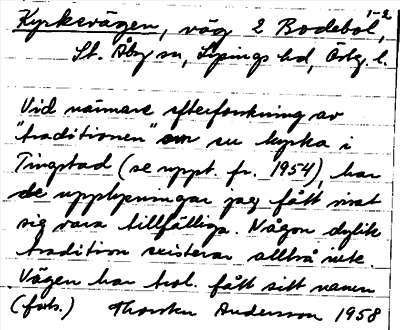 1-2
Kyrkevägen, väg 2 Bodebol,
St. Åby sn, Lysings hd, Östg. l.
Vid närmare efterforskning av
"traditionen" om en kyrka i
Tingstad (se uppt. fr. 1954), har
de upplysningar jag fått visat
sig vara tillfälliga. Någon dylik
tradition existerar alltså inte.
Vägen har trol. fått sitt namn
(forts.) Thorsten Andersson 1958